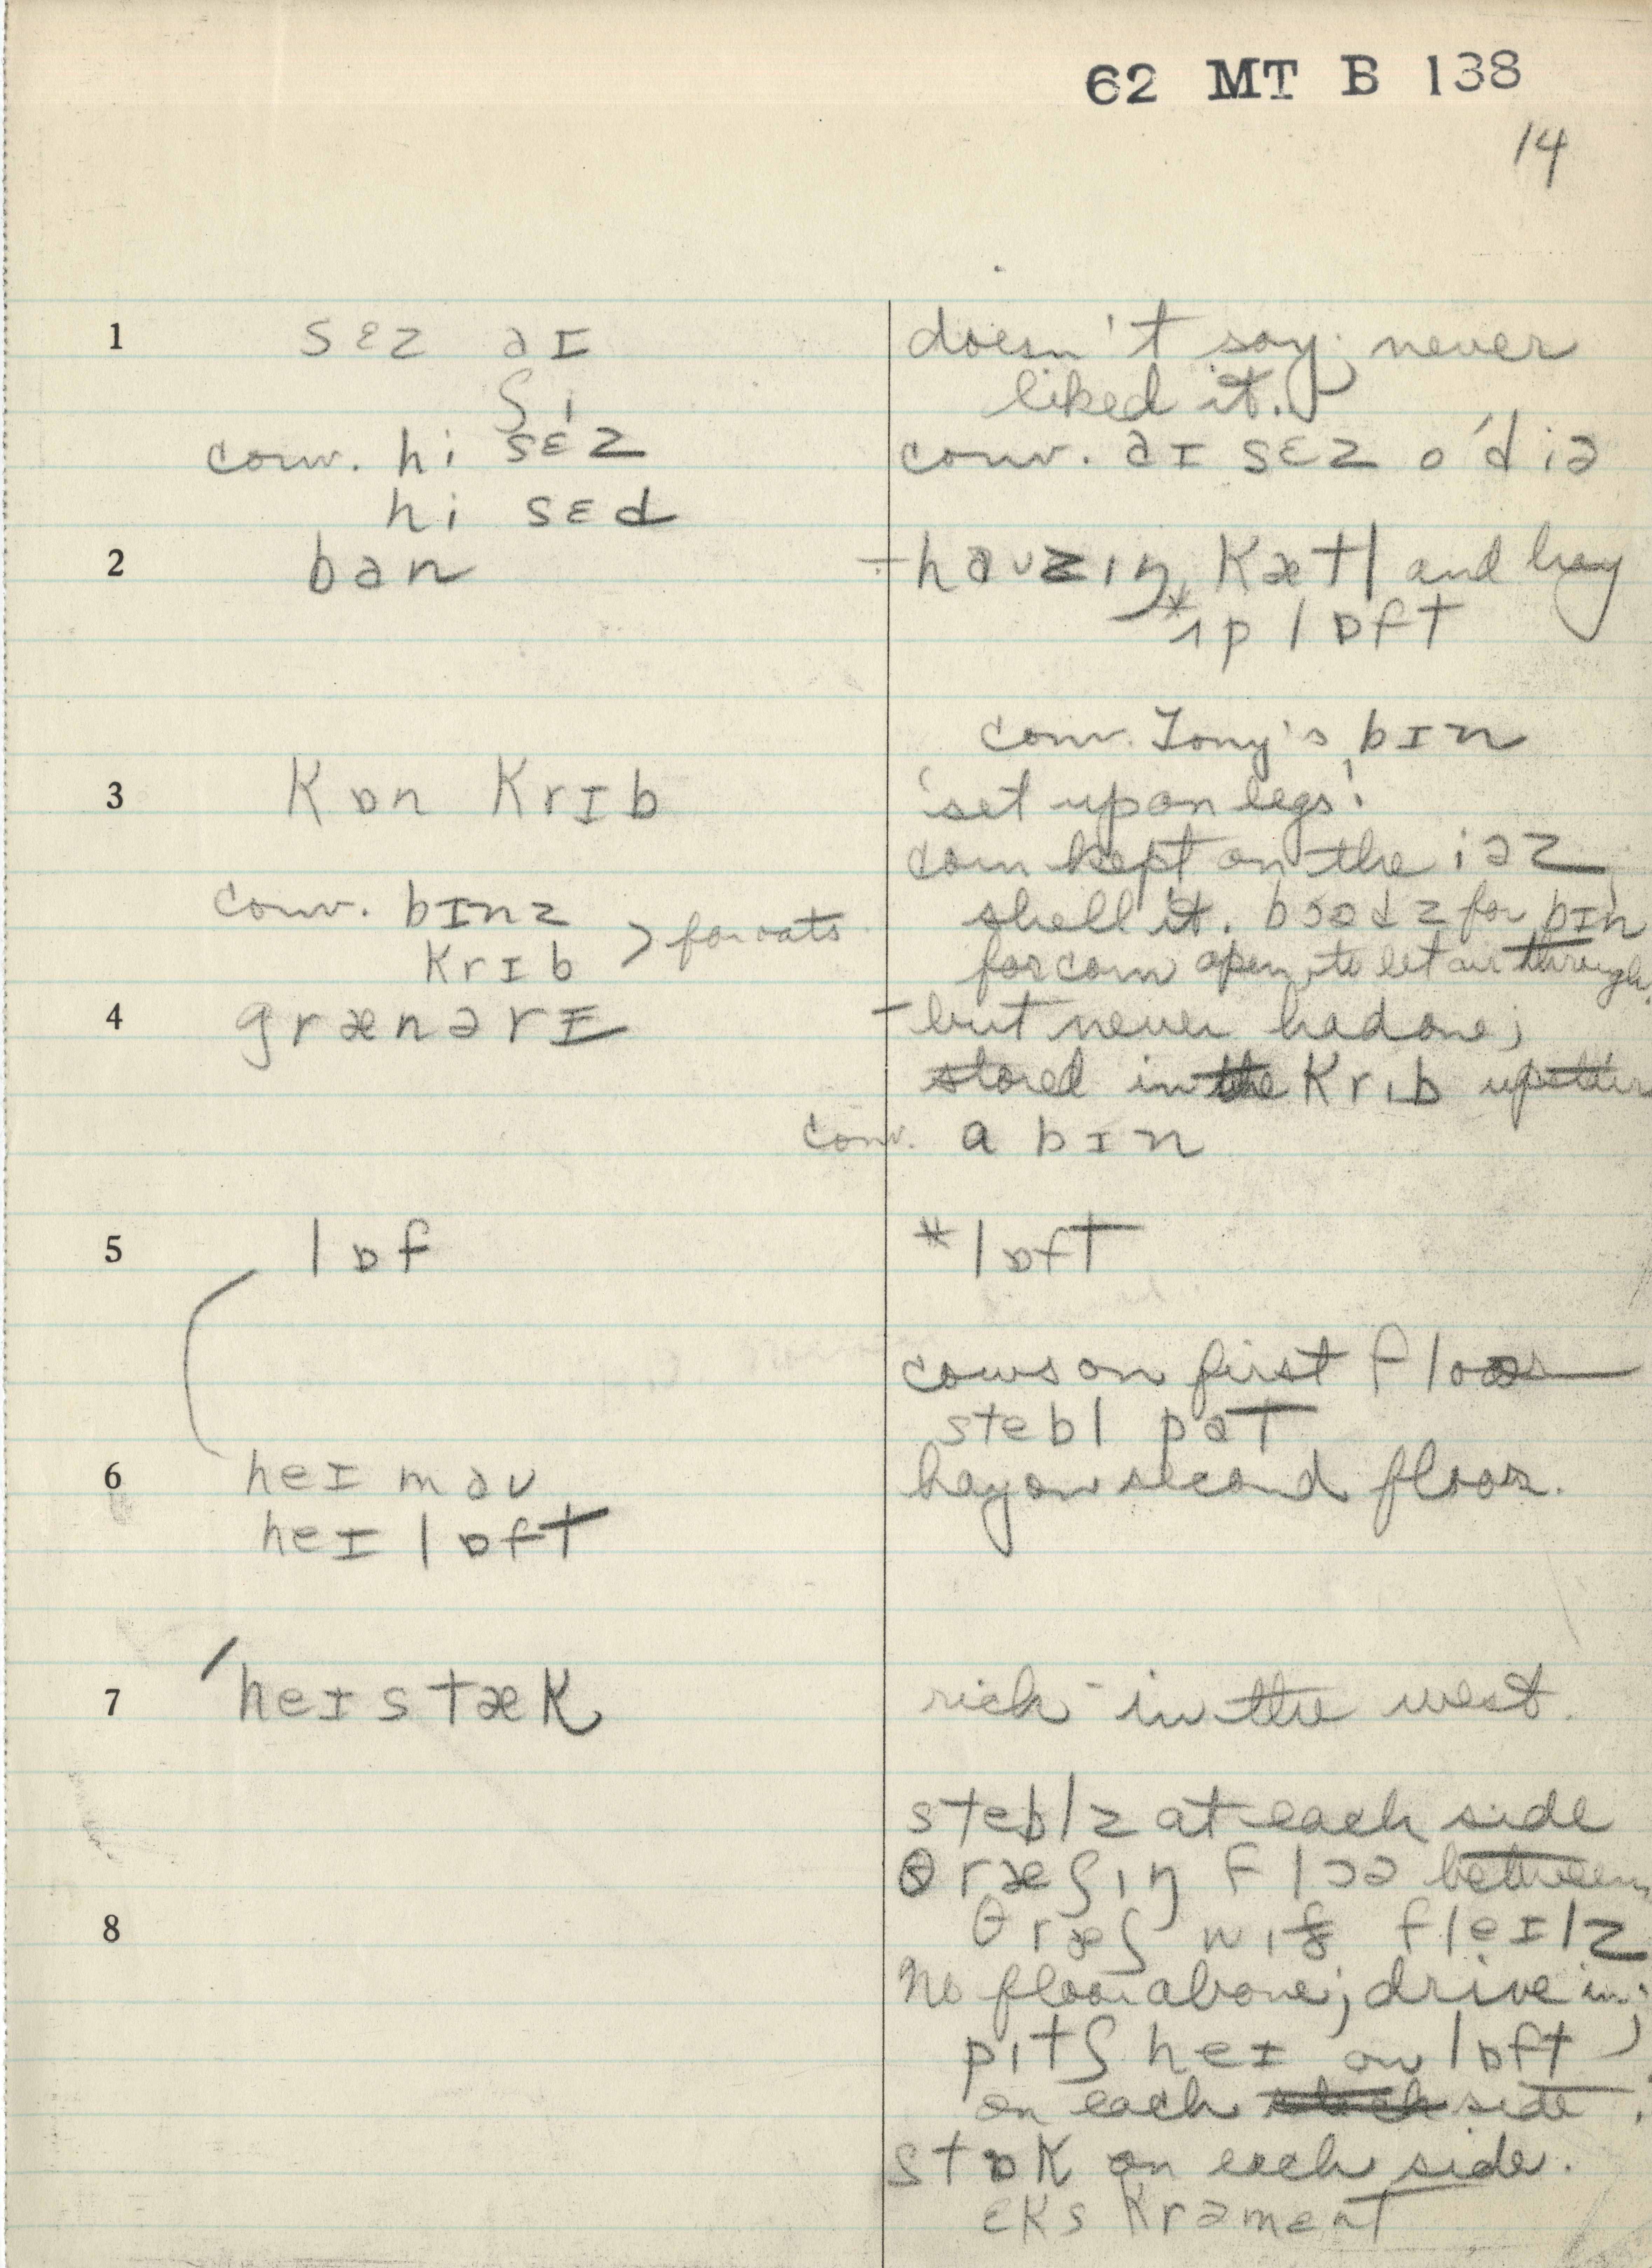 62 MT B 138
14
1 sɛz aɪ doesn't say; never
ʃi liked it.
conv. hi sɛz conv. aɪ sɛz o'diə
hi sɛd
2 ban - havzɪŋ Kætl and hay
*ʌp lɒft
conv. Tony's bɪn
3 Kɒn Krɪb 'set up on legs'.
corn kept on the iəz,
conv. bɪnz shell it. bɔədz for bɪn
Krɪb > for oats for corn open to let air through.
4 grænərɪ - but never had one;
stored in the Krɪb
conv. a bɪn
5 lɒf *lɒft
cows on first floor
stebl pat
6 heɪ mau hay on second floor.
heɪ lɒft
7 'heɪstæK rick - in the west.
steblz at each side
θræʃɪŋ flɔə between
8 θræʃ wɪð fleɪlz
No floor above; drive in;
pɪtʃ heɪ on lɒft
on each side.
stɒK on each side.
ɛKsKrəmənt